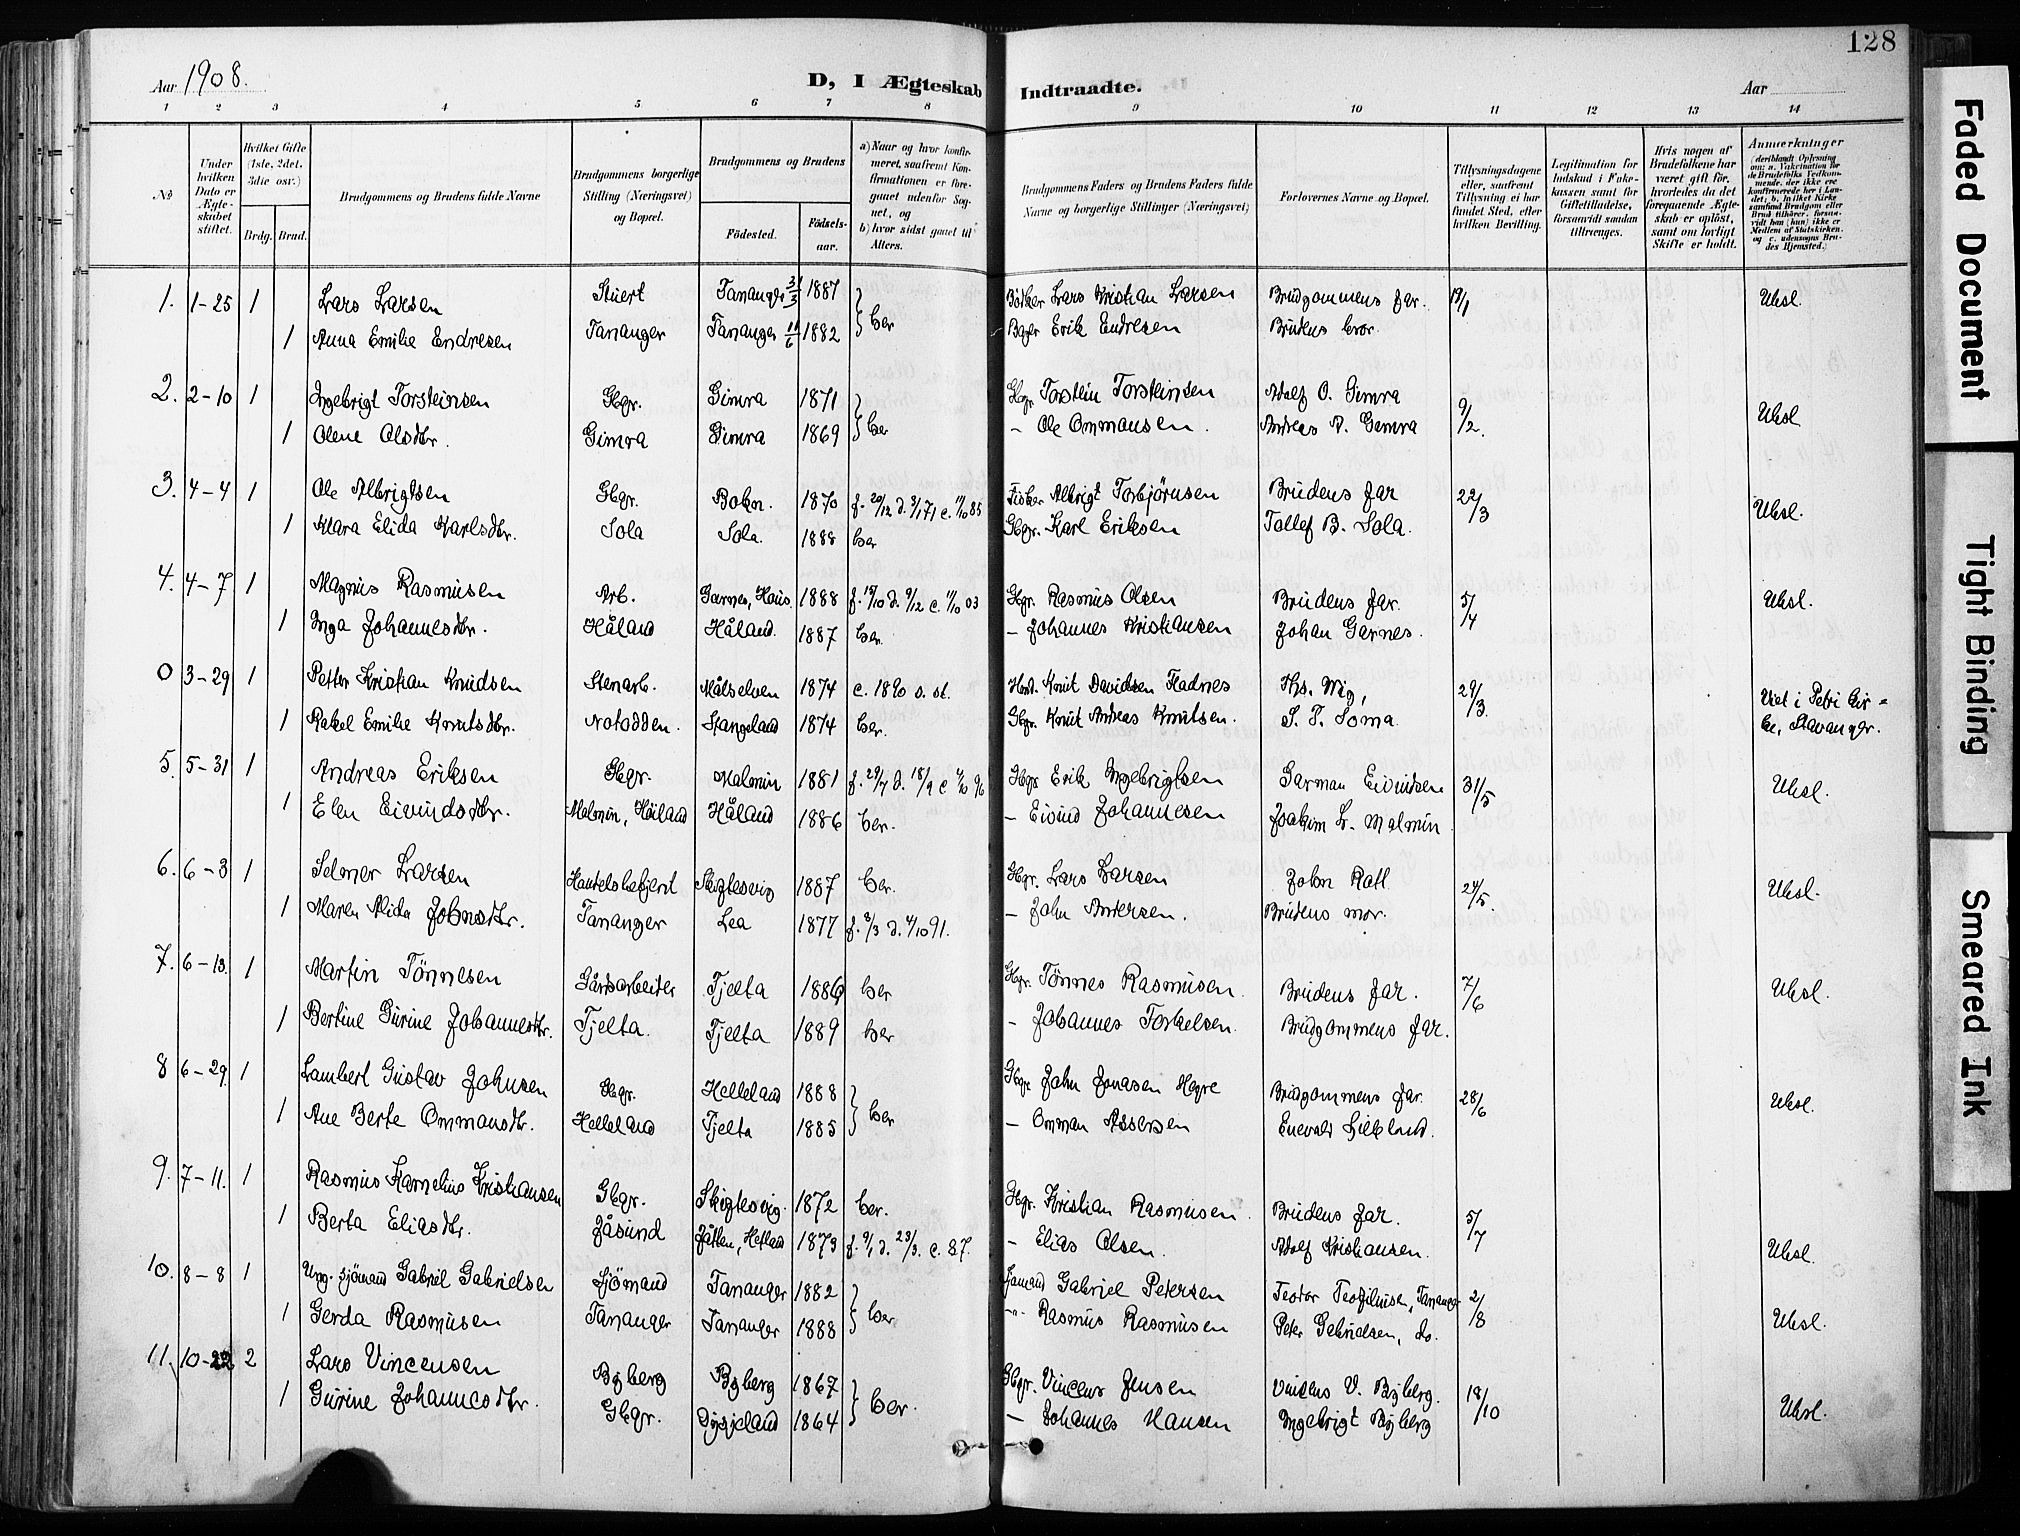 128
Aar 1908.
D, I Ægteskab Indtraadte.
Aar
1 2 3 4 5 6 7 8 9 10 11 12 13 14
№
Under hvilken Dato er Ægteskabet stiftet.
Hvilket Gifte (1ste, 2det, 3die osv.)
Brdg. Brud.
Brudgommens og Brudens fulde Navne
Brudgommens borgerlige Stilling (Næringsvei) og Bopæl.
Brudgommens og Brudens
Födested. Födselsaar.
a) Naar og hvor konfirmeret, saafremt Konfirmationen er foregaaet udenfor Sognet, og
b) hvor sidst gaaet til Alters.
Brudgommens Faders og Brudens Faders fulde Navne og borgerlige Stillinger (Næringsvei)
Forlovernes Navne og Bopæl.
Tillysningsdagene eller, saafremt Tillysning ei har fundet Sted, efter hvilken Bevilling.
Legitimation for Indskud i Enkekassen samt for Giftetilladelse, forsaavidt saadan tiltrænges.
Hvis nogen af Brudefolkene har været gift før, hvorledes da det foregaaende Ægteskab er oplöst, samt om lovligt Skifte er holdt.
Anmerkninger
1. 1-25 1 Lars Larsen Stuert Tananger 3/3 1887 ber Bödker Lars Kristian Larsen Brudgommens far. 19/1 Uhsl.
1 Anna Emilie Endresen Tananger Tananger 11/6 1882 Bager Erik Endresen Brudens bror.
2. 2-10 1 Ingebrigt Torsteinsen Gbgr. Gimra 1871 ber Gbgr. Torstein Torsteinsen Adolf O. Gimra 9/2. Uhsl
1 Olene Olsdtr. Gimra Gimra 1869 - Ole Ommunsen. Andreas A. Gimra
3. 4-4 1 Ole Albrigtsen Gbgr. Bokn. 1870 f. 20/12 d. 8/1 71 c. 11/10 85 Fisker Albrigt Torbjörnsen Brudens far 22/3 Uhsl.
1 Klara Elida Karlsdtr. Sola Sola. 1888 ber Gbgr. Karl Eriksen Tollef B. Sola.
4. 4-7 1 Magnus Rasmusen Arb. Garnes, Haus. 1888 f. 19/10 d. 9/12 c. 11/10 03 Gbgr. Rasmus Olsen Brudens far. 5/4 Uhsl.
1 Inga Johannesdtr. Håland Håland. 1887 ber. - Johannes Kristiansen Johan Garnes.
0 3-29 1 Petter Kristian Knudsen Stenarb. Målselven 1874 c. 1890 s. st. Hmd. Knut Davidsen Fladnes Ths. Wig, 29/3 Viet i Petri kir=
1 Rakel Emilie Knutsdtr. Notodden. Stangeland 1874 ber. Gbgr. Knut Andreas Knutsen. S. T. Soma. ke, Stavanger.
5. 5-31 1 Andreas Eriksen Gbgr. Malmin 1881 f. 29/7 d. 18/9 c 4/10 96 Gbgr Erik Ingebrigtsen Garman Eivindsen 31/5 Uhsl.
1 Elen Eivindsdtr. Malmin, Höiland Håland 1886 ber. - Eivind Johannesen Joakim Lr. Malmin
6. 6-3 1 Selmer Larsen Handelsbetjent Skigtesvig 1887 ber. Gbgr. Lars Larsen John Rott 24/5. Uhsl.
1 Maren Alida Johnsdtr. Tananger Lea 1877 f. 8/3 d. 4/10 91. - John Andersen. Brudens mor.
7. 6-13. 1 Martin Tönnesen Gårdsarbeider Tjelta 1886 ber Gbgr. Tönnes Rasmusen. Brudens far. 7/6 Uhsl.
1 Bertine Gurine Johannesdtr. Tjelta. Tjelta 1889 ber - Johannes Torkelsen. Brudgommens far.
8 6-29. 1 Lambert Gustav Johnsen Gbgr. Helleland 1888 ber Gbgr John Jonasen Hogre Brudgommens far. 28/6 Uhsl.
1 Ane Berte Ommundsdtr. Helleland Tjelta 1885 - Omman Assersen Enevald Lilleland.
9. 7-11. 1 Rasmus Karnelius Kristiansen Gbgr. Skigtesvig. 1872 ber. Gbgr. Kristian Rasmusen. Brudens far. 5/7 Uhsl.
1 Berta Eliasdtr. Jåsund Jåtten, Hetland 1873 f. 9/1 d. 23/3. c. 87. - Elias Olsen. Adolf Kristiansen.
10. 8-8 1 Ung. sjömand Gabriel Gabrielsen Sjömand Tananger 1882 ber Sjömand Gabriel Petersen Teodor Teofilusen, Tananger 2/8 Uhsl.
1 Gerda Rasmusen Tananger Tananger 1888 -"- Rasmus Rasmusen Peter Gabrielsen, do.
11. 10-22 2 Lars Vincensen Byberg Byberg 1867 ber. Gbgr. Vincens Jensen Vincens V. Byberg. 18/10 Uhsl.
1 Gurine Johannesdtr. Gbgr. Dysjeland 1864 - Johannes Hansen Ingebrigt Byberg
Faded Document
Tight Binding
Smeared Ink